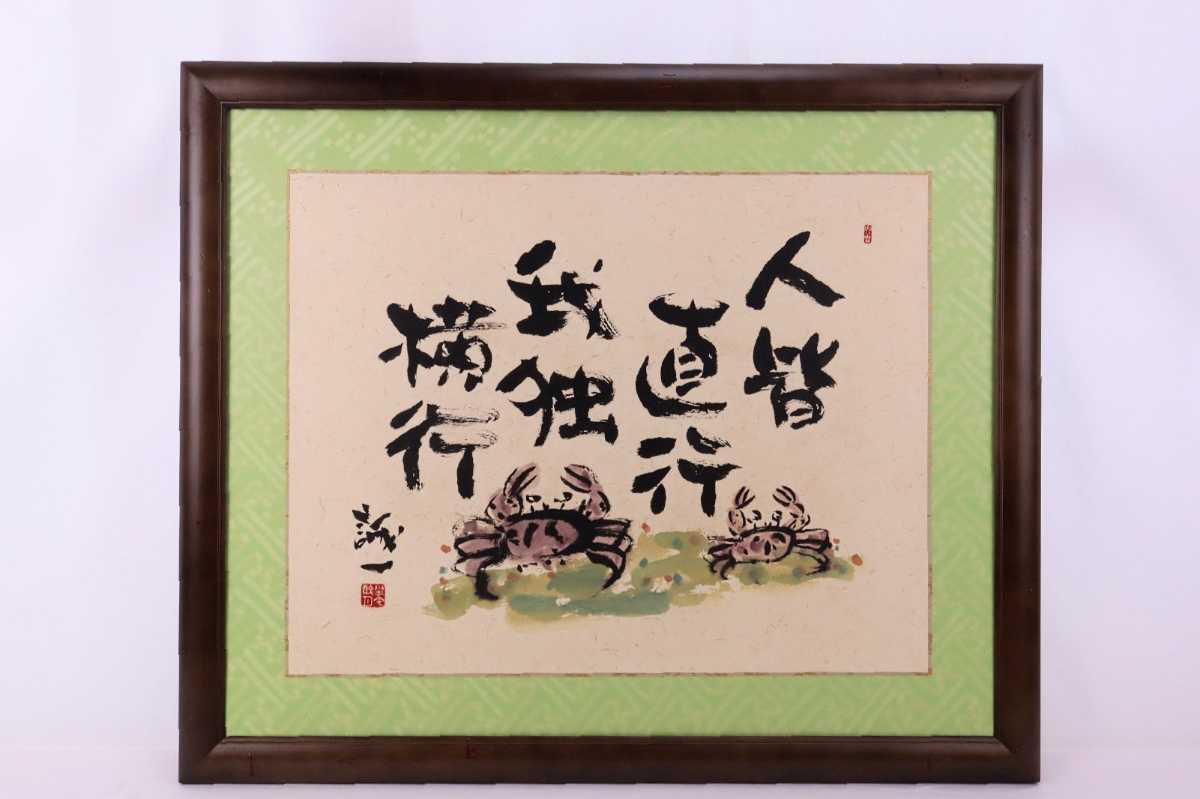 人皆
直行
我独
横行
誠一